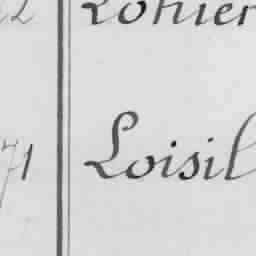 2 Lohier
71 Loisil